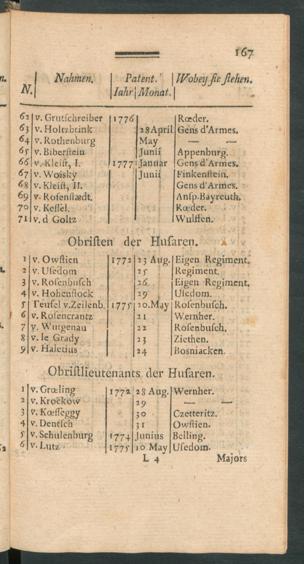 167
N. Nahmen. Patent. Wobey sie stehen.
Jahr Monat.
62 v. Grutschreiber 1776 Rœder.
63 v. Holtzbrink 28 April Gens d'Armes.
64 v. Rothenburg May — —
65 v. Biberstein Junii Appenburg.
66 v. Kleist, I. 1777 Januar Gens d'Armes.
67 v. Woisky Junii Finkenstein.
68 v. Kleist, II. Gens d'Armes.
69 v. Rosenstædt. Ansp. Bayreuth.
70 v. Kessel. Rœder.
71 v. d Goltz Wulffen.
Obristen der Husaren.
1 v. Owstien 1772 23 Aug. Eigen Regiment.
2 v. Usedom 25 Regiment.
3 v. Rosenbusch 26. Eigen Regiment.
4 v. Hohenstock 29 Usedom.
5 Teufel v. Zeilenb. 1775 20. May Rosenbusch.
6 v. Rosencrantz 21 Werner.
7 v. Wurgenau 22 Rosenbusch.
8 v. le Grady 23 Ziethen.
9 v. Haletius 24 Bosniacken.
Obristlieutenants der Husaren.
1 v. Grœling 1772 28 Aug. Wernher.
2 v. Krockow 29 — —
3 v. Kœszeggy 30 Czetteritz.
4 v. Dentsch 31 Owstien.
5 v. Schulenburg 1774 Junius Belling.
6 v. Lutz 1775 10 May Usedom.
L 4 Majors